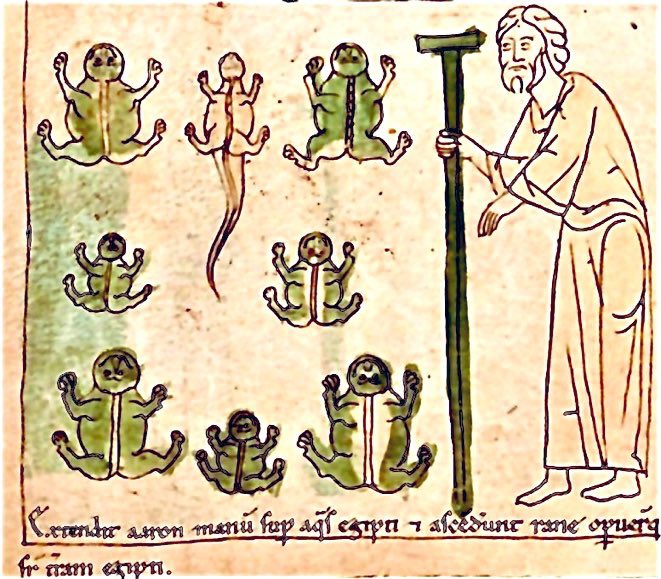 Extendit aaron manū sup aq̄s egipti ⁊ ascēdūnt rane opuer̄q̄
sr̄ t̄ram egipti.